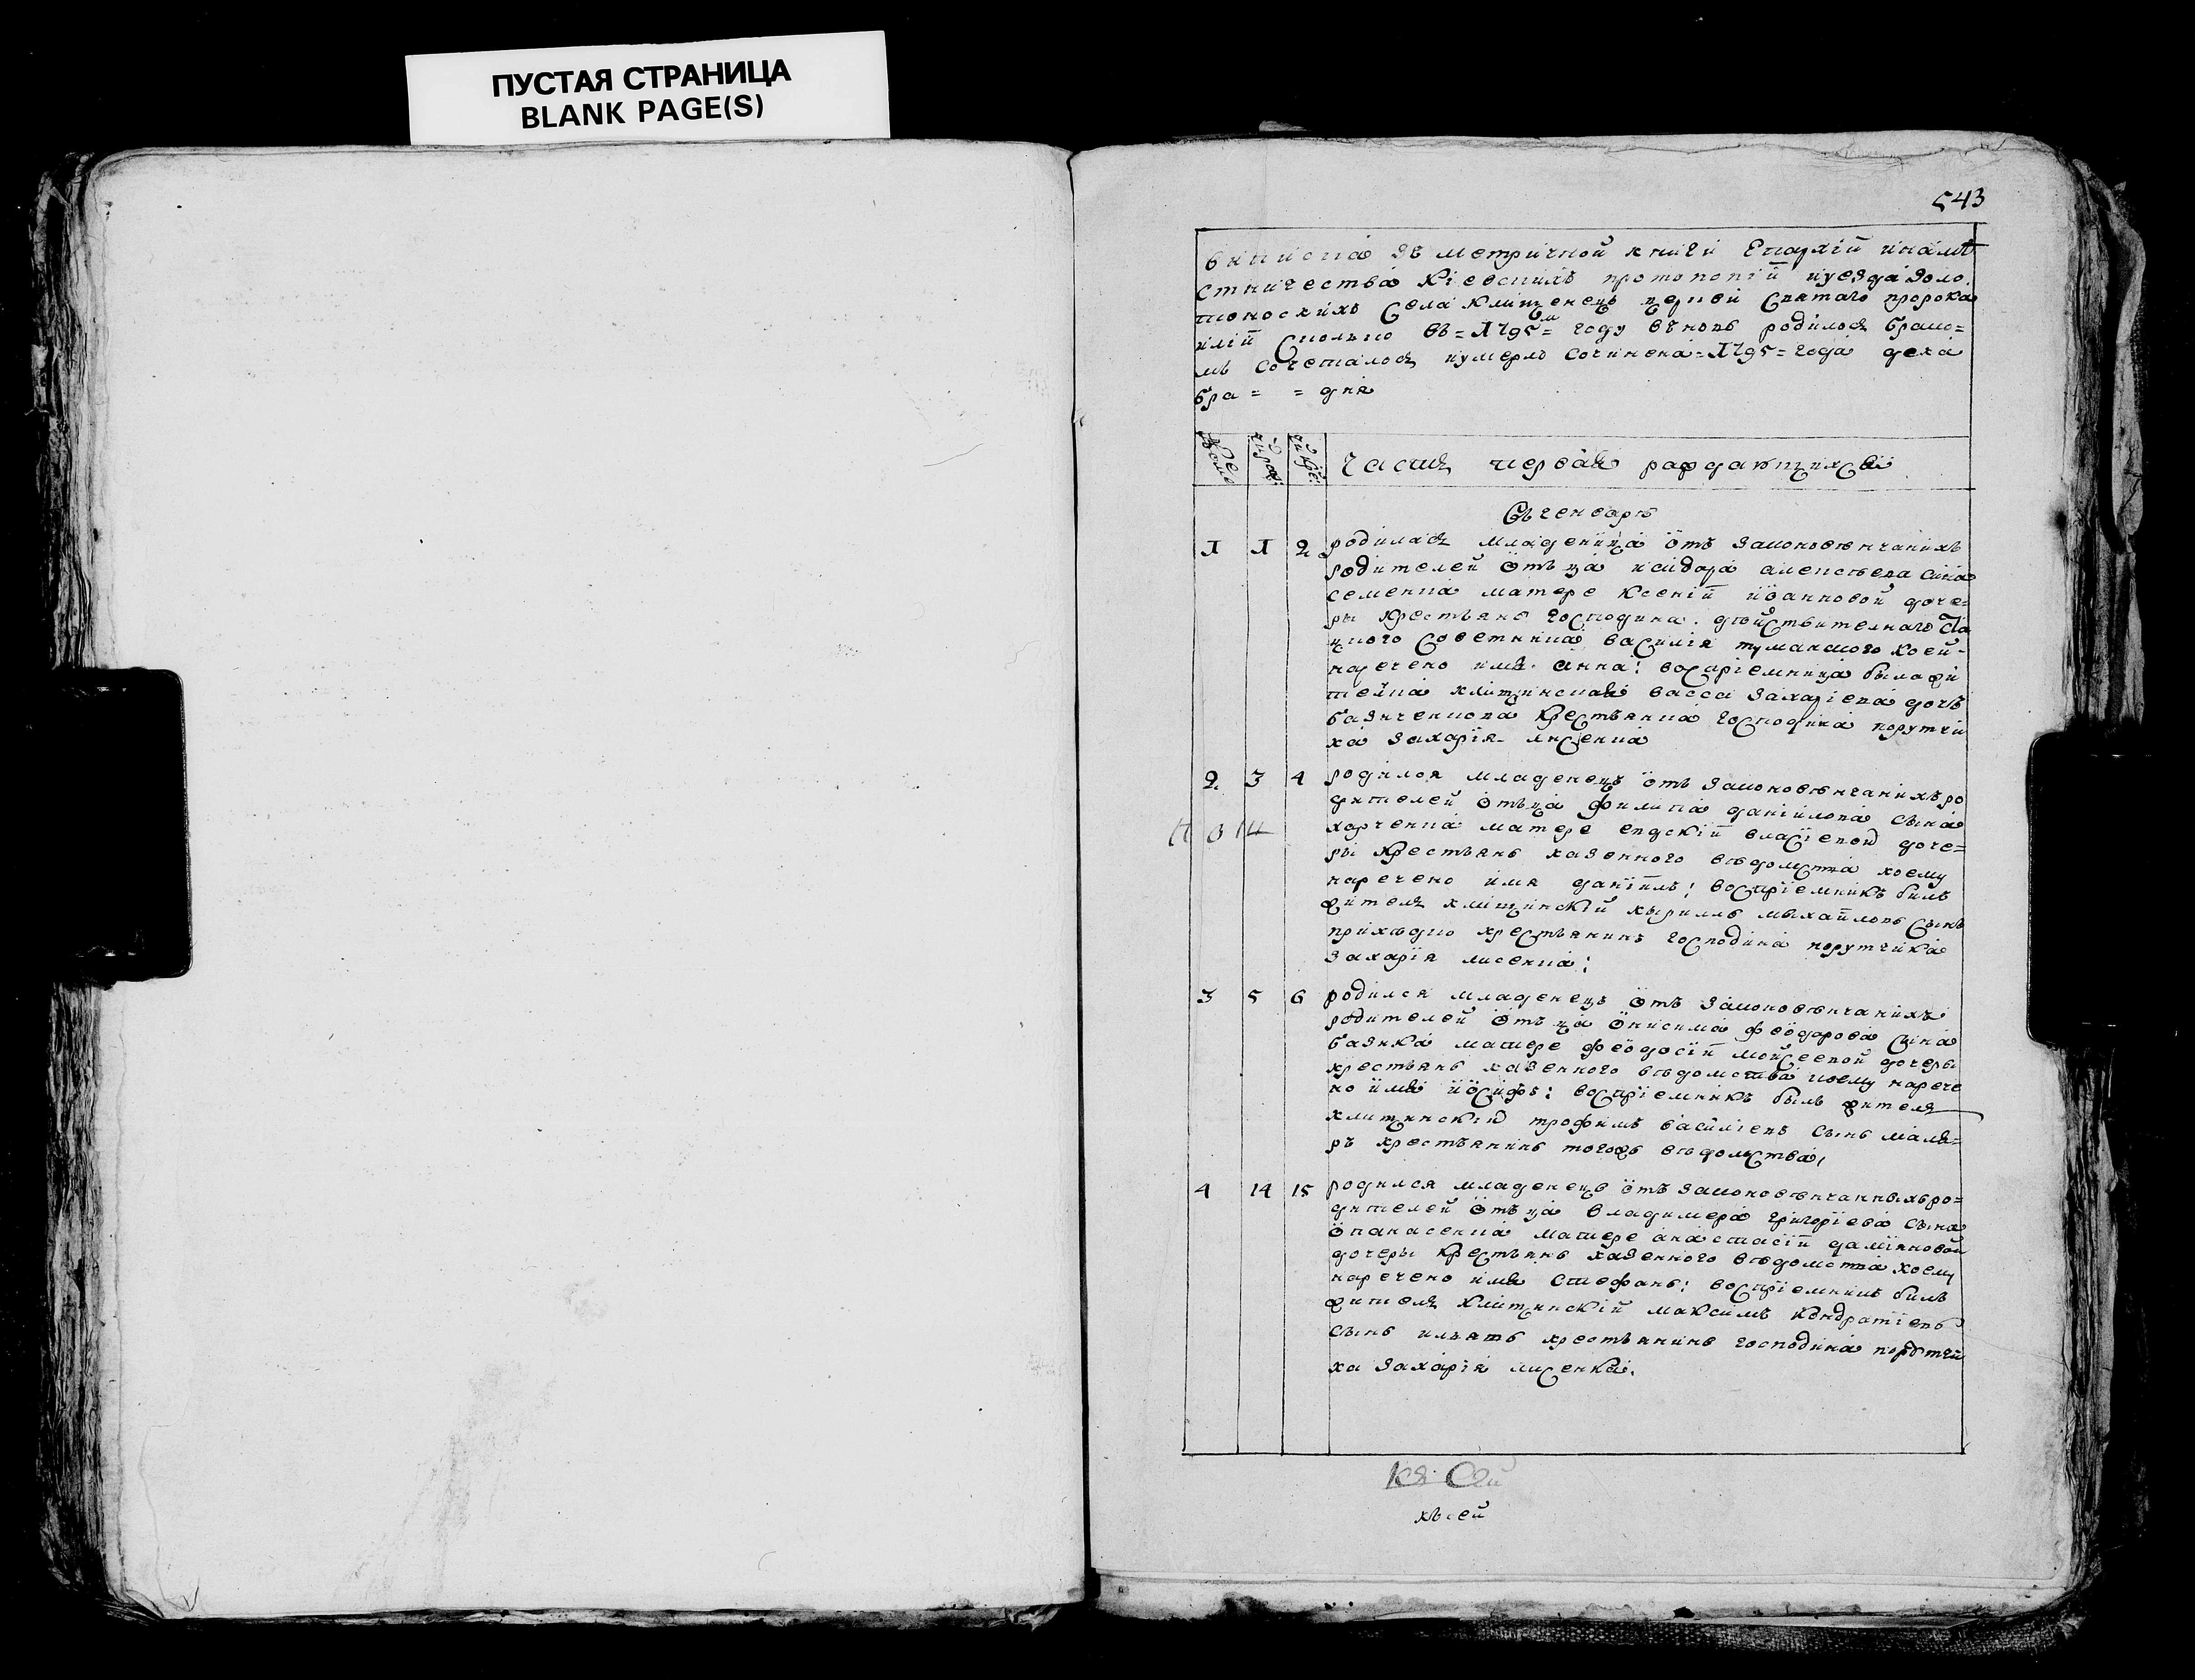 ПУСТАЯ СТРАНИЦА
BLANK PAGE(S)
543
виписка зъ метричной книги Епархїй инамѣ
стничества Кїевскихъ протопопїй иуезда золо
тоноскихъ Села Клищенецъ церкви Святаго пророка
илїй Сколько въ = 1795 = м году вновь родилося брако=
мъ сочеталося иумерло сочинена = 1795 = года дека
бра = = дня
Часть первая раждающихся
Съ генваря
1 1 2 родилася младеница ѿтъ законовѣнчанихъ
родителей ѿтъца исидора алексѣева сина
семенка матере Ксенїй иѡанновой доче=
ры крестьянъ господина дѣйствителнаго Ста
цкого Советника василїя туманского коей
наречено имя анна: воспрїемница была жи
телка клищинская васса захарїева дочь
базиченкова крестьянка господина порутчи
ка захарїя лисенка
2 3 4 родился младенецъ ѿтъ законовѣнчанихъ ро
дителей ѿтъца филипа данїилова сына
харченка матере евдокїй власїевой доче=
ры крестьянъ казенного вѣдомства коему
наречено имя данїилъ: воспрїемникъ билъ
житель клищинскїй кырилъ мыхайловъ сынъ
приходко крестьянинъ господина порутчика
захарїя лисенка:
3 5 6 родился младенецъ ѿтъ законовѣнчанихъ
родителей ѿтъца ѡнисима феѡдорова сына
базика матере феѡдосїй мойсеевой дочеры
крестьянъ казенного вѣдомства коему нарече
но имя иѡсифъ: воспрїемникъ былъ житель
клищинскїй трофимъ василїевъ сынъ маля=
ръ крестьянинъ тогожъ вѣдомства,
4 14 15 родился младенецъ ѿтъ законовѣнчанныхъ ро=
дителей ѿтъца владимера григорїева сына
ѡпанасенка матере анастасїй дамїяновой
дочеры крестьянъ казенного вѣдомства коему
наречено имя стефанъ: воспрїемникъ билъ
житель клищинскїй максимъ кондратїевъ
сынъ ильяшъ крестьянинъ господина порутчи
ка захарїя лисенка.
къ сей